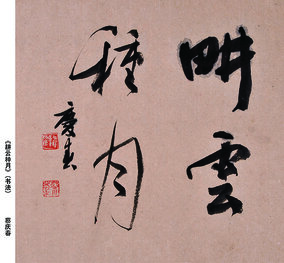 畊雲
種月
慶春
《耕云种月》（书法）
庆春